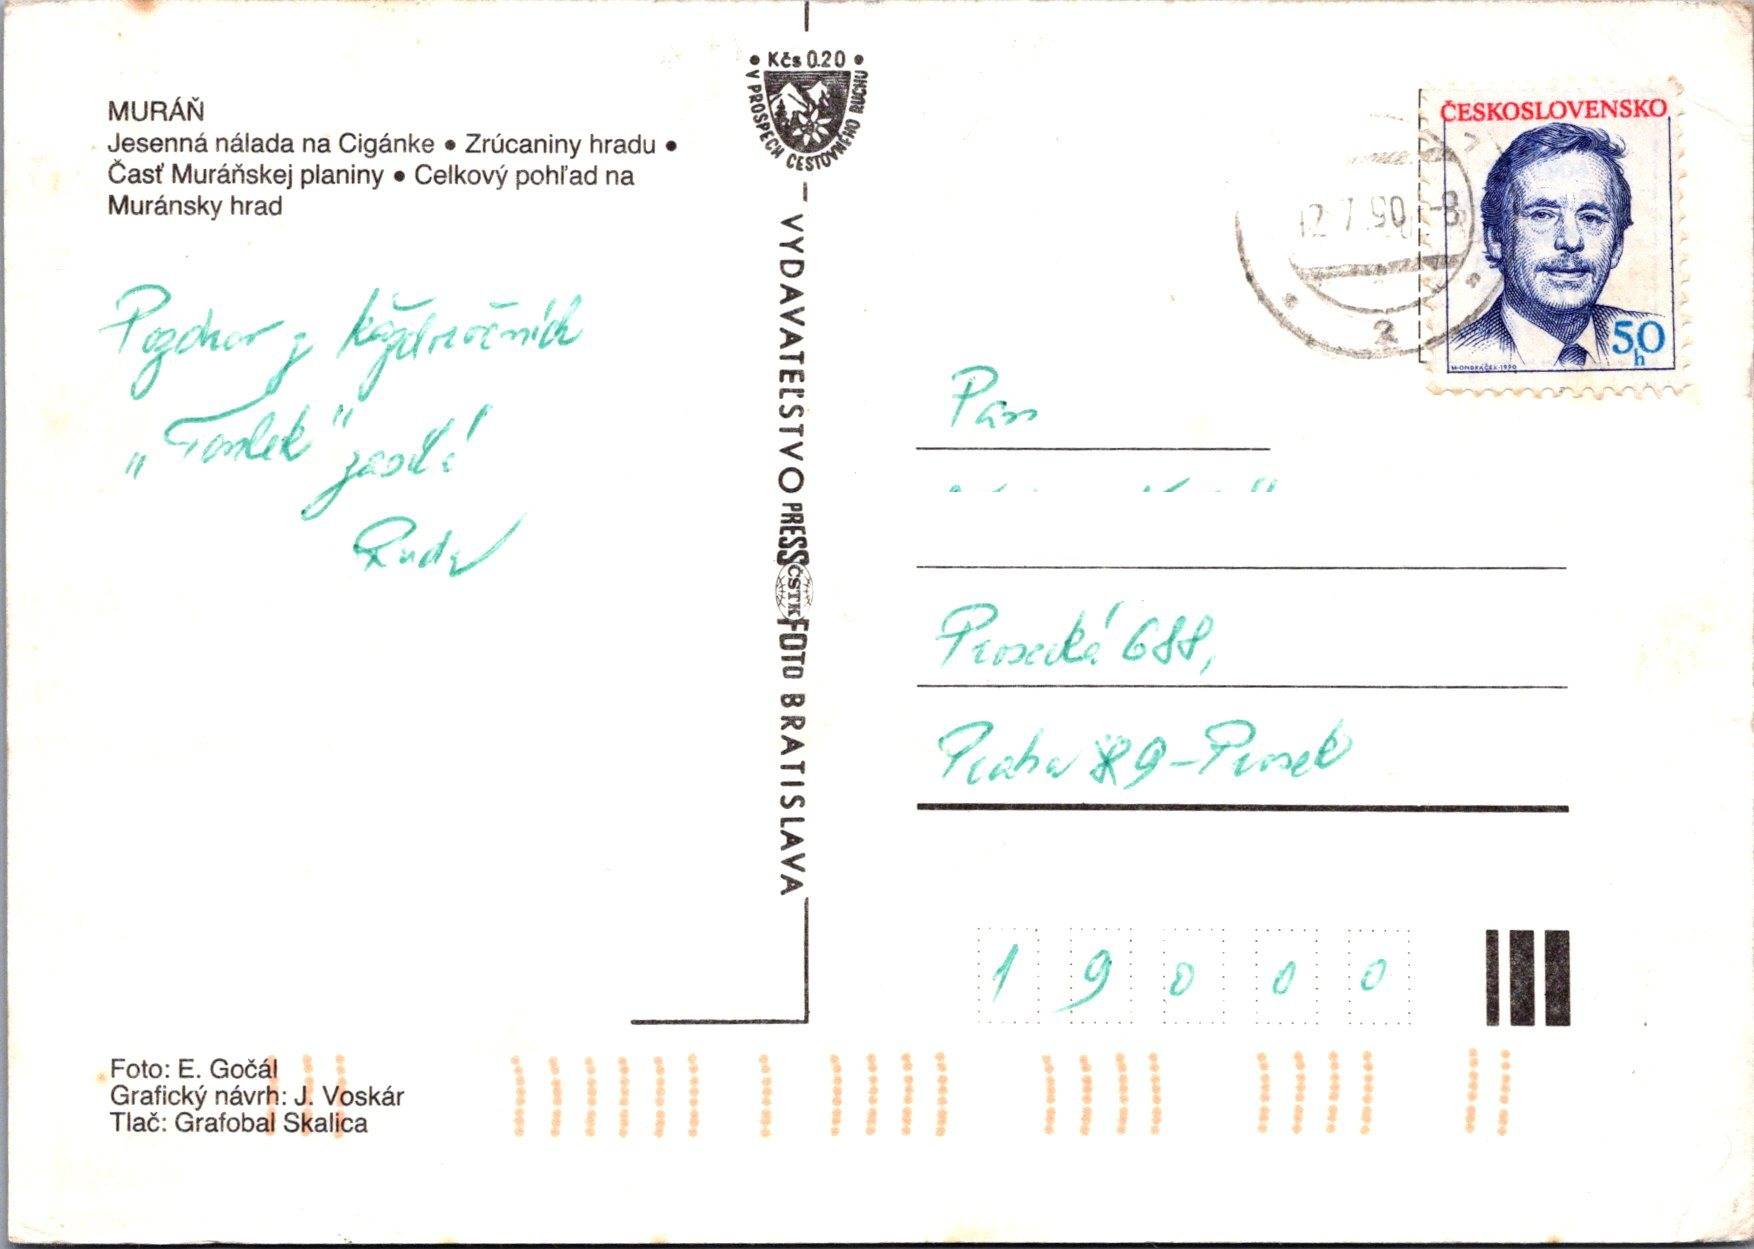 MURÁŇ
Jesenná nálada na Cigánke • Zrúcaniny hradu •
Časť Muráňskej planiny • Celkový pohľad na
Muránsky hrad
Pozdrav z každoročních
„Toulek" zasílá
Ruda
Foto: E. Gočál
Grafický návrh: J. Voskár
Tlač: Grafobal Skalica
• Kčs 0.20 •
V PROSPECH CESTOVNÉHO RUCHU
VYDAVATEĽSTVO PRESSFOTO BRATISLAVA
ČSTK
ČESKOSLOVENSKO
50
h
M.ONDRÁČEK-1990
12.7.90-8
2
Pan
Prosecká 688,
Praha 9-Prosek
19000